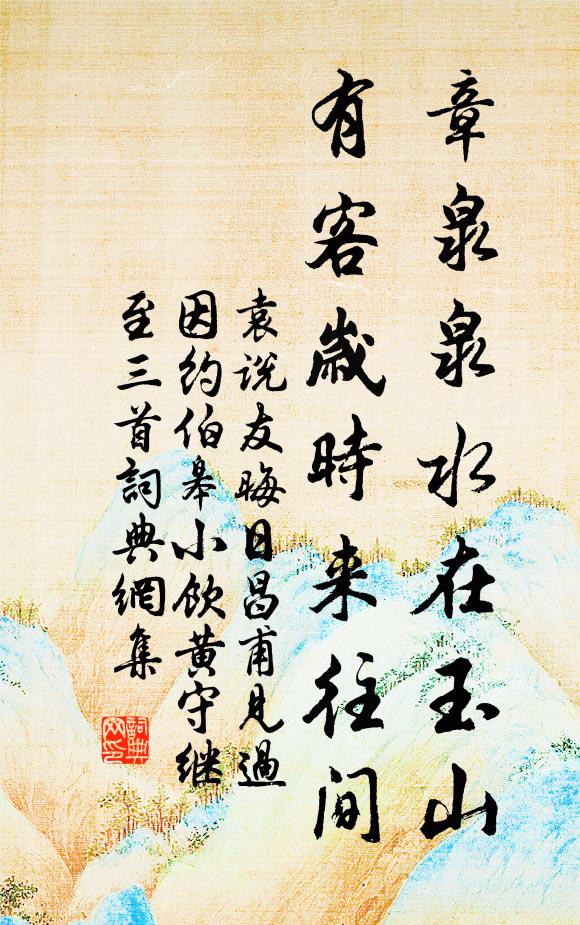 章泉泉水在玉山
有客歲時来往间
袁说友晦日昌甫見過
因约伯皋小飲黄守继
至三首詞典網集
詞典网印